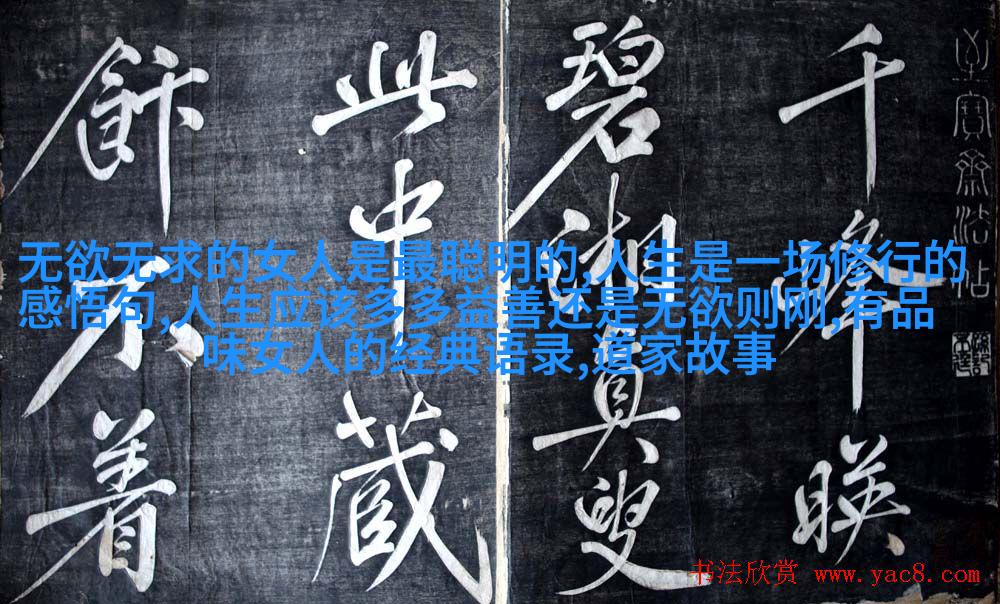 至寶齋法帖
千峰映
碧湘真叟
此中藏
飰不着
无欲无求的女人是最聪明的,人生是一场修行的
感悟句,人生应该多多益善还是无欲则刚,有品
味女人的经典语录,道家故事
书法欣赏 www.yac8.com